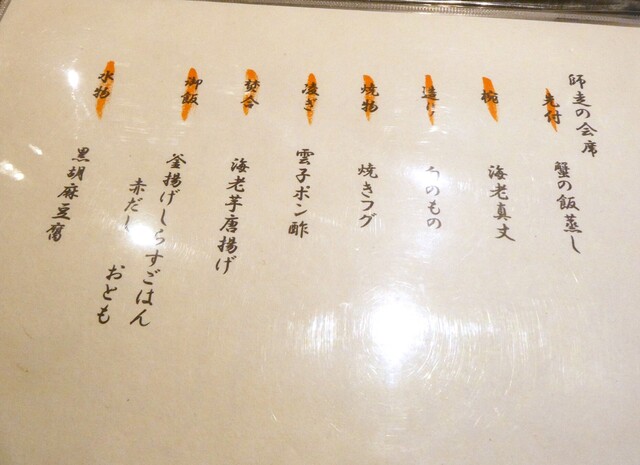 師走の会席
先付
蟹の飯蒸し
椀
海老真丈
造り
のもの
焼物
焼きフグ
凌ぎ
雲子ポン酢
焚合
海老芋唐揚げ
御飯
釜揚げしらすごはん
赤だし おとも
水物
黒胡麻豆腐